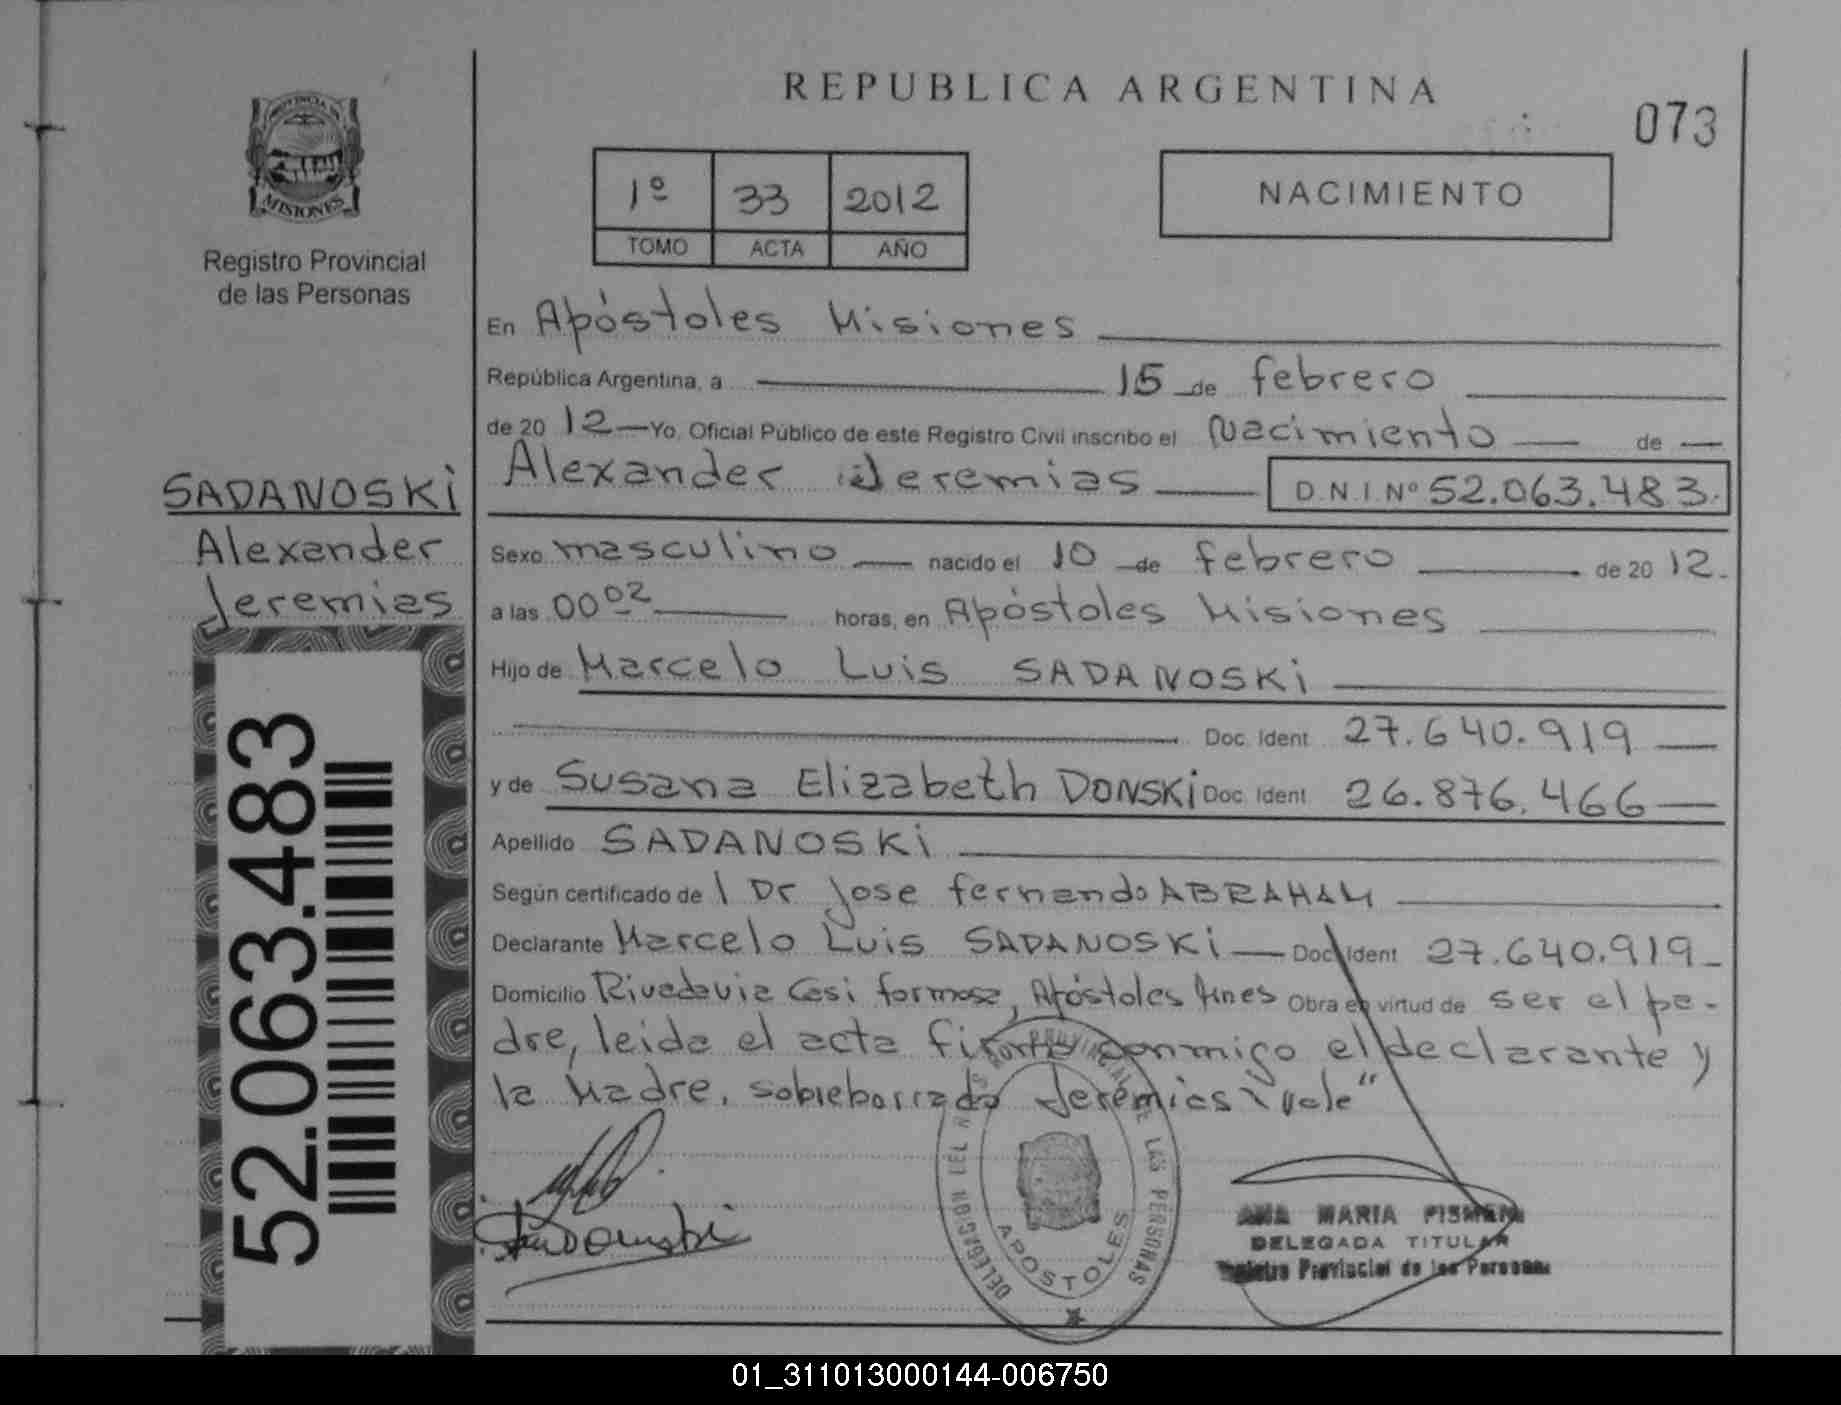 REPUBLICA ARGENTINA
073
PROVINCIA DE
MISIONES
Registro Provincial
de las Personas
1º 33 2012
TOMO ACTA AÑO
NACIMIENTO
En Apóstoles Misiones
República Argentina, a 15 de febrero
de 2012 Yo, Oficial Público de este Registro Civil inscribo el Nacimiento de
Alexander Jeremias D.N.I Nº 52.063.483.
SADANOSKi
Alexander
Jeremias
52.063.483
Sexo masculino nacido el 10 de febrero de 2012.
a las 00 02 horas, en Apóstoles Misiones
Hijo de Marcelo Luis SADANOSKi
Doc. Ident 27.640.919
y de Susana Elizabeth DONSKi Doc. Ident 26.876.466
Apellido SADANOSKi
Según certificado de l Dr Jose fernando ABRAHAM
Declarante Marcelo Luis SADANOSKi Doc Ident 27.640.919
Domicilio Rivadavia Casi formosa, Apóstoles Mnes Obra en virtud de ser el pa-
dre, leida el acta firma conmigo el declarante y
la Madre, sobreborrado Jeremias "vale"
DELEGACION DEL REGISTRO PROVINCIAL DE LAS PERSONAS
APOSTOLES
ANA MARIA
DELEGADA TITULAR
Registro Provincial de las Personas
01_311013000144-006750